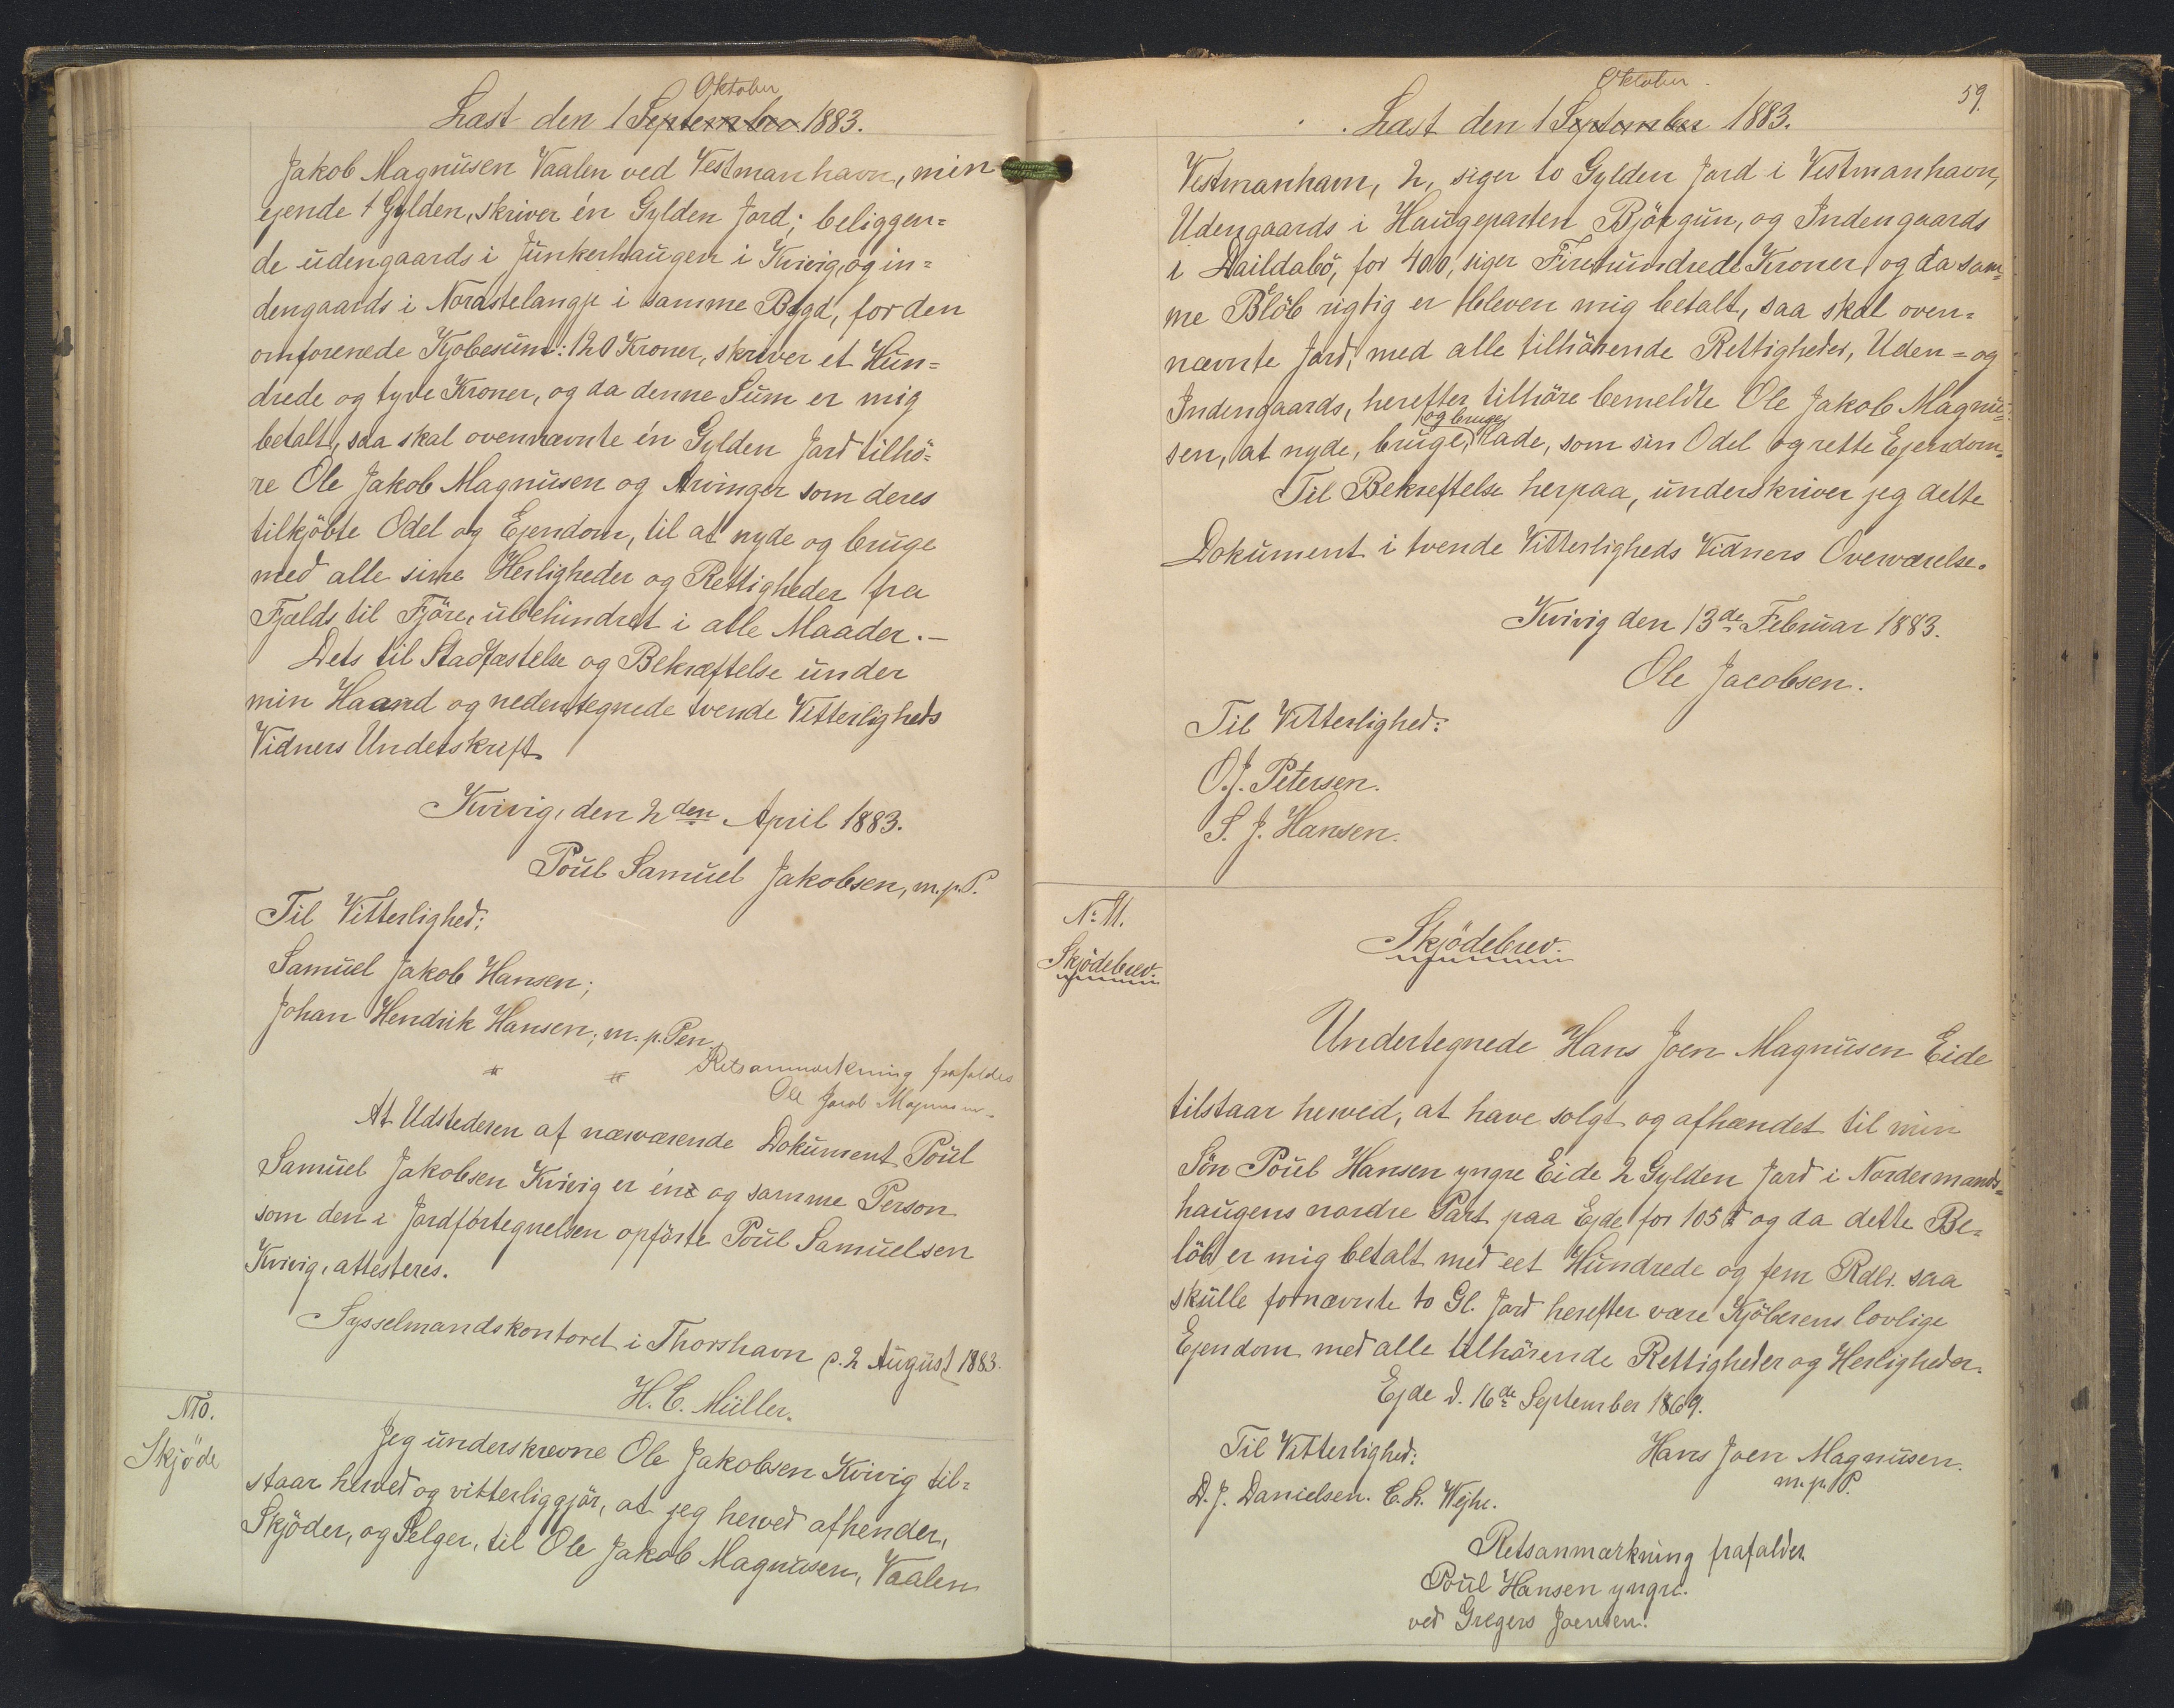 Oktober
Læst den 1 September 1883.
Jakob Magnusen Vaalen ved Vestmanhavn, min
ejende 1 Gylden, skriver én Gylden Jord; beliggen=
de udengaards i Junkerhaugen i Kvivig, og in=
dengaards i Norastelangje i samme Bygd, for den
omforenede Kjøbesum: 120 Kroner, skriver et Hun=
drede og tyve Kroner, og da denne Sum er mig
betalt, saa skal ovennævnte én Gylden Jord tilhö=
re Ole Jakob Magnusen og Arvinger som deres
tilkjöbte Odel og Ejendom, til at nyde og bruge
med alle sine Herligheder og Rettigheder fra
Fjelds til Fjöre, ubehindret i alle Maader.—
Dets til Stadfæstelse og Bekræftelse under
min Haand og nedentegnede tvende Vitterligheds
Vidners Underskrift.
Kvivig, den 2den April 1883.
Poul Samuel Jakobsen, m.p.P.
Til Vitterlighed:
Samuel Jakob Hansen;
Johan Hendrik Hansen; m.p.Pen.
Retsanmærkning frafaldes
Ole Jacob Magnusen
At Udstederen af nærværende Dokument Poul
Samuel Jakobsen Kvivig er én og samme Person
som den i Jordfortegnelsen opförte Poul Samuelsen
Kvivig, attesteres.
Sysselmandskontoret i Thorshavn p. 2 August 1883.
H. C. Müller.
N10.
Skjöde
Jeg underskrevne Ole Jakobsen Kvivig til=
staar herved og vitterliggjör, at jeg herved afhender,
Skjöder, og Selger, til Ole Jakob Magnusen, Vaalen
59.
Oktober
Læst den 1 September 1883.
Vestmanhavn, 2, siger to Gylden Jord i Vestmanhavn,
Udengaards i Haugeparten Björgun, og Indengaards
i Daildabö, for 400, siger Firehundrede Kroner, og da sam=
me Blöb rigtig er bleven mig betalt, saa skal oven=
nævnte Jord, med alle tilhörende Rettigheder, Uden= og
Indengaards, herefter tilhöre bemeldte Ole Jakob Magnu=
og bruge
sen, at nyde, bruge, lade, som sin Odel og rette Ejendom.
Til Bekreftelse herpaa, underskriver jeg dette
Dokument i tvende Vitterligheds Vidners Overværelse.
Kvivig den 13de Februar 1883.
Ole Jacobsen.
Til Vitterlighed:
O. J. Petersen.
S. J. Hansen.
No 11.
Skjödebrev.
Skjödebrev.
Undertegnede Hans Joen Magnusen Eide
tilstaar herved, at have solgt og afhændet til min
Sön Poul Hansen yngre Eide 2 Gylden Jord i Nordermands=
haugens nordre Part paa Ejde for 105 og da dette Be=
löb er mig betalt med eet Hundrede og fem Rdlr. saa
skulle fornævnte to Gl. Jord herefter være Kjöberens lovlige
Ejendom med alle tilhörende Rettigheder og Herligheder.
Ejde d. 16de September 1869.
Til Vitterlighed:
Hans Joen Magnusen.
m.p.P.
D. J. Danielsen. C. L. Wejhe.
Retsanmærkning frafaldes
Poul Hansen yngre.
ved Gregers Joensen.